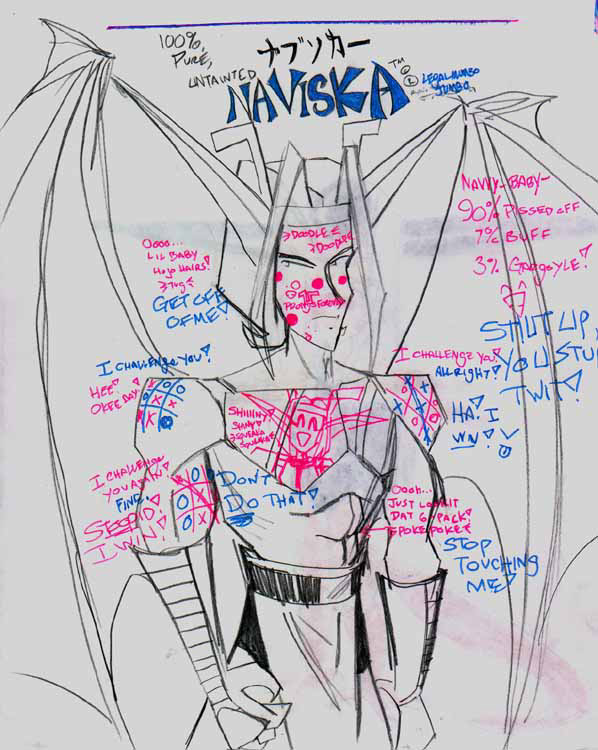 100%
PURE,
UNTAINTED
ナブソカー
NAVISKA™
LEGAL MUMBO
JUMBO
NAVVY-BABY-
90% PISSED OFF
7% BUFF
3% GARGOYLE!
SHUT UP,
YOU STUPID
TWIT!
>DOODLE<
>DOODLE<
Oooo...
LIL BABY
HOJO HAIRS!
>TUG<
GET OFF
OF ME!
I CHALLENGE YOU!
HEE!
OKEE DAY!
I CHALLENGE YOU!
ALL RIGHT!
HA! I
WIN!
SHIIINY
SHINY!
I CHALLENGE
YOU AGAIN!
FINE.
STOOPID!
I WIN!
DON'T
DO THAT!
Oooh...
JUST LOOKIT
DAT 6-PACK!
>POKE POKE<
STOP
TOUCHING
ME!